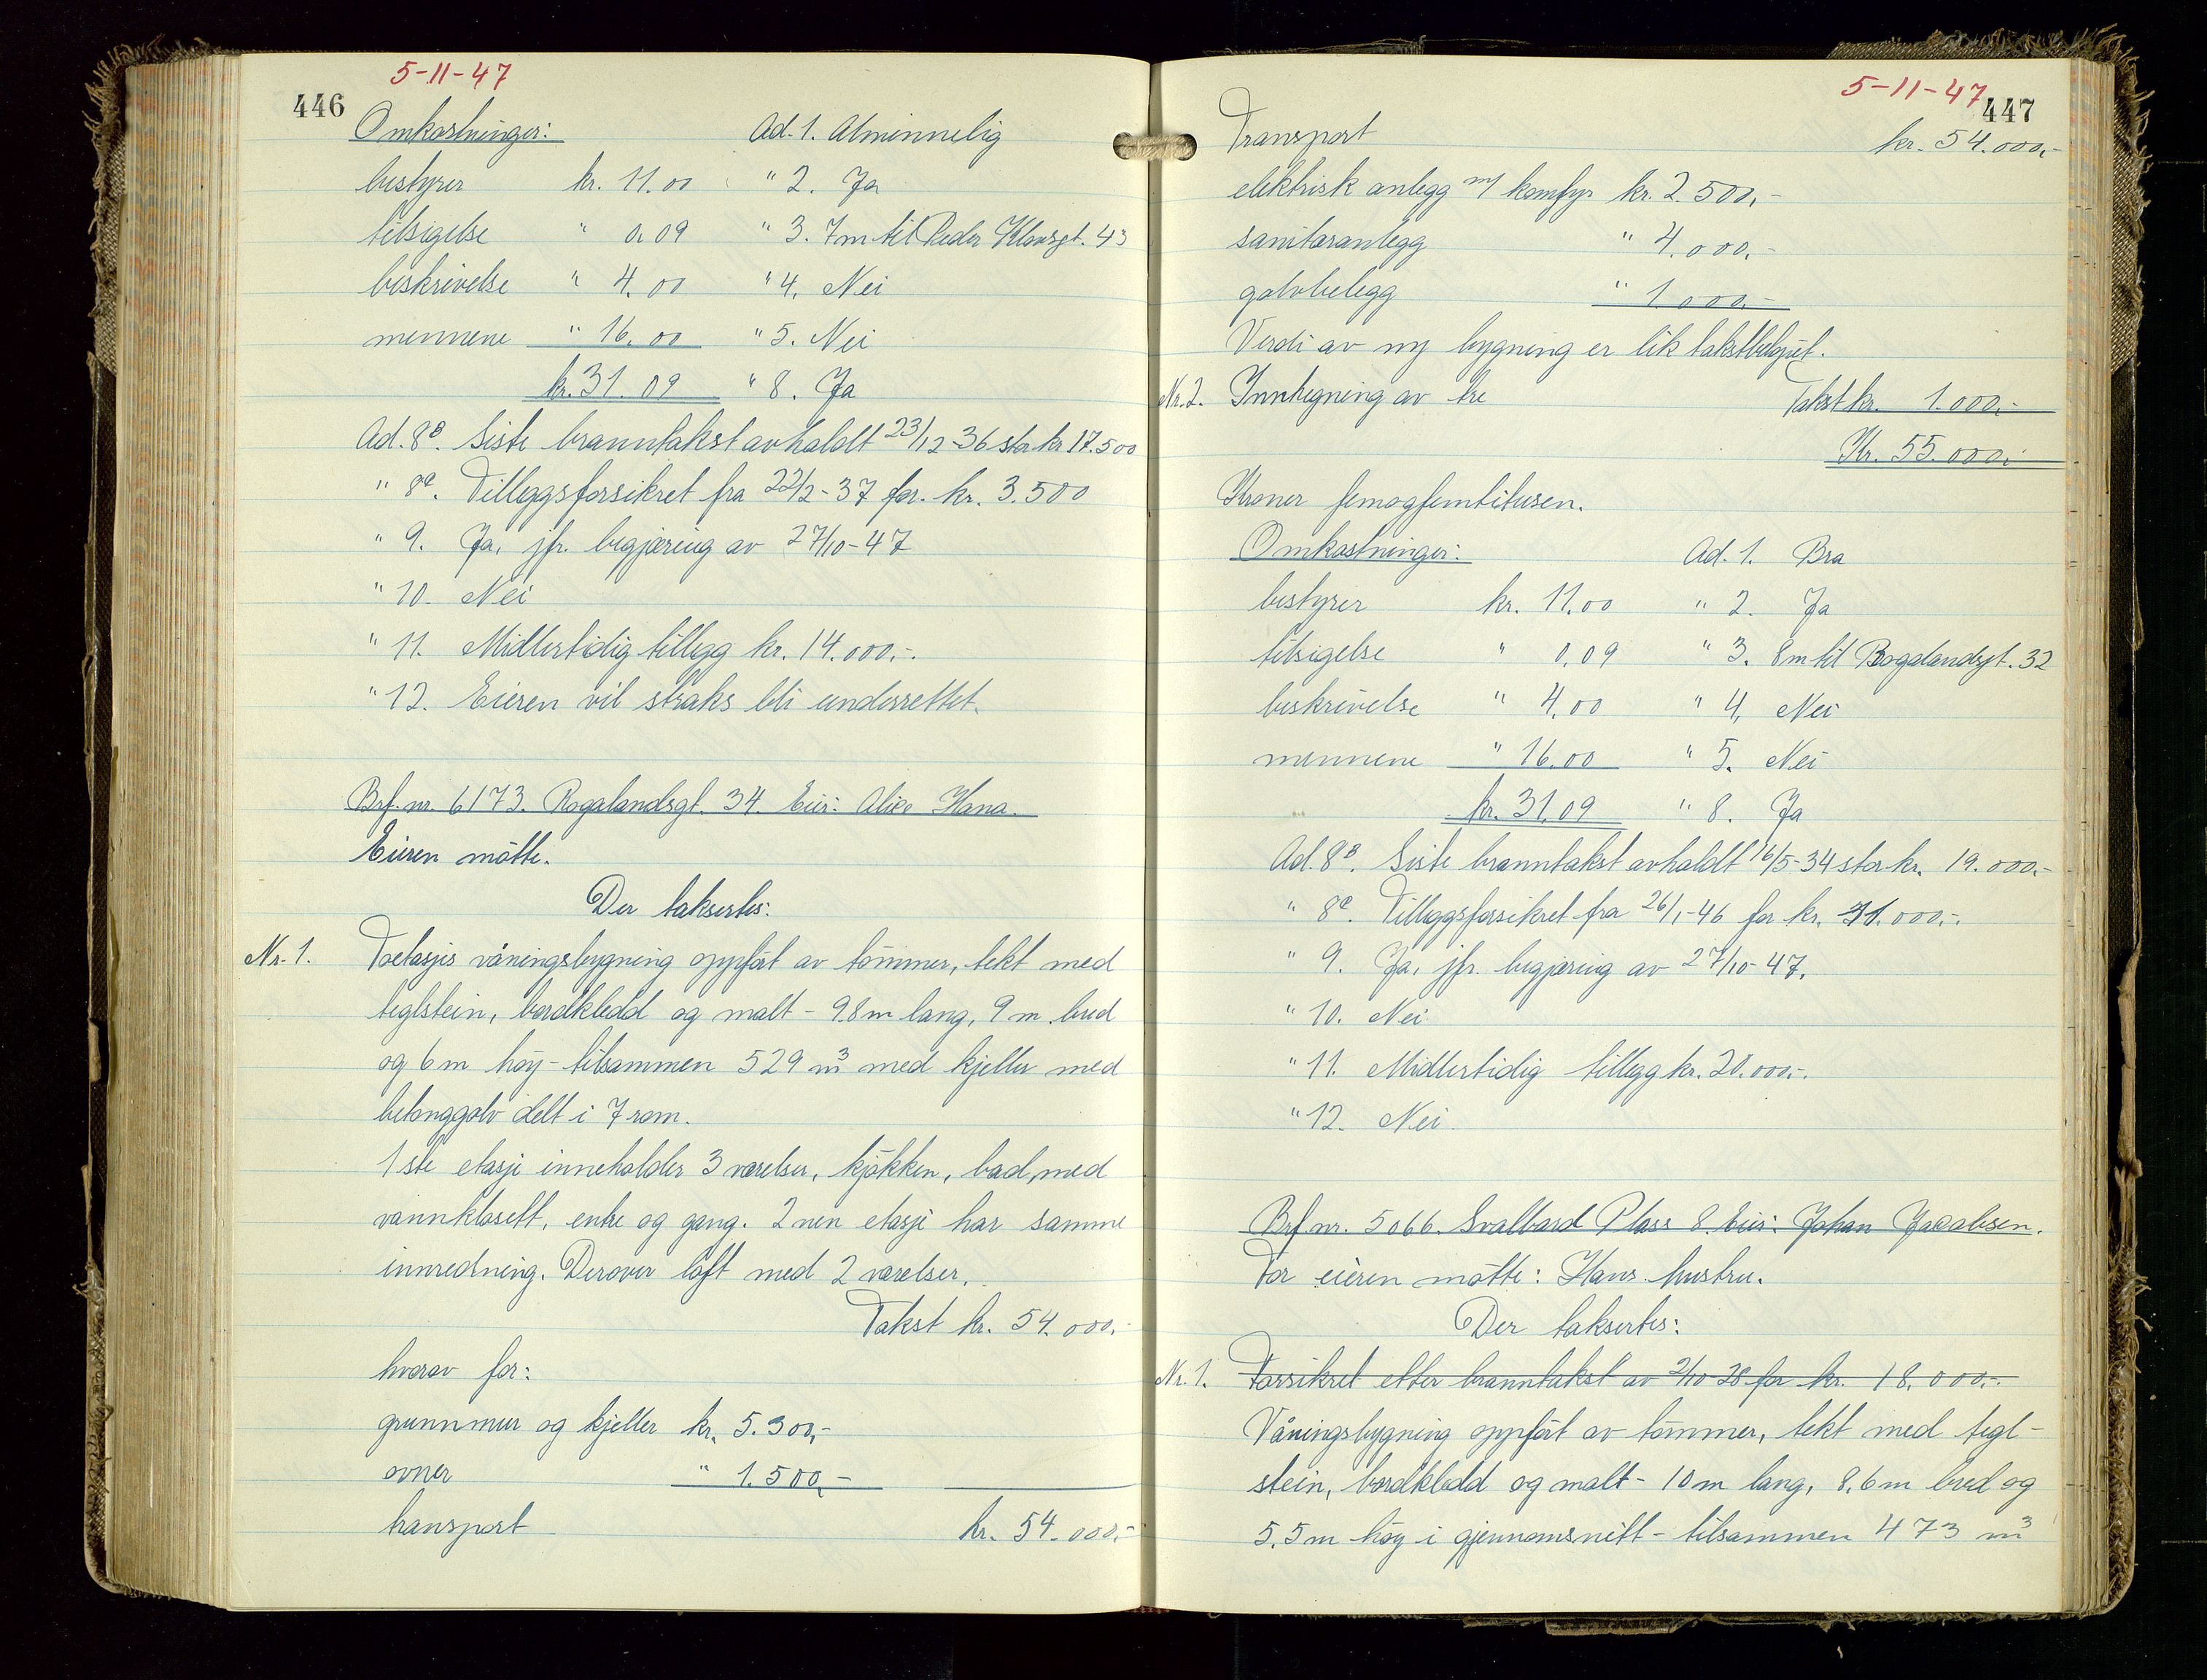 5-11-47
446
Omkostninger: Ad. 1. Alminnelig
bestyrer kr. 11.00 " 2. Ja
tilsigelse " 0.09 " 3. 7m til Peder Klowsgt. 43
beskrivelse " 4.00 " 4. Nei
mennene " 16.00 " 5. Nei
kr. 31.09 " 8. Ja
Ad. 8B. Siste branntakst avholdt 23/12-36 stor kr 17.500
" 8C. Tilleggsforsikret fra 22/2-37 for kr. 3.500
" 9. Ja, jfr. begjæring av 27/10-47
" 10. Nei
" 11. Midlertidig tillegg kr. 14.000,-.
" 12. Eieren vil straks bli underrettet.
Brf. nr. 6173. Rogalandsgt. 34. Eier: Alice Hana.
Eieren møtte.
Der taksertes:
Nr. 1. Toetasjes våningsbygning oppført av tømmer, tekt med
teglstein, bordkledd og malt - 9.8m lang, 9 m. bred
og 6m høy - tilsammen 529 m3 med kjeller med
betonggolv delt i 7 rom.
1ste etasje inneholder 3 værelser, kjøkken, bad, med
vannklosett, entre og gang. 2nen etasje har samme
innredning. Derover loft med 2 værelser.
Takst kr. 54.000,-
hvorav for:
grunnmur og kjeller kr. 5.300,-
ovner " 1.500,-
transport kr. 54.000,-
5-11-47
447
Transport kr. 54.000,-
elektrisk anlegg m/ komfyr kr. 2.500,-
sanitæranlegg " 4.000,-
golvbelegg " 1.000,-
Verdi av ny bygning er lik takstbeløpet.
Nr. 2. Innhegning av tre Takst kr. 1.000,-
Kr. 55.000,-
Kroner femogfemtitusen.
Omkostninger: Ad. 1. Bra
bestyrer kr. 11.00 " 2. Ja
tilsigelse " 0,09 " 3. 8m til Rogalandsgt. 32
beskrivelse " 4,00 " 4, Nei
mennene " 16.00 " 5. Nei
kr. 31,09 " 8. Ja
Ad. 8B. Siste branntakst avholdt 16/5-34 stor kr. 19.000,-
" 8C. Tilleggsforsikret fra 26/1-46 for kr. 31.000,-.
" 9. Ja, jfr. begjæring av 27/10-47.
" 10. Nei
" 11. Midlertidig tillegg kr. 20.000,-.
" 12. Nei.
Brf. nr. 5066. Svalbard Plass 8. Eier: Johan Jacobsen.
For eieren møtte: Hans hustru.
Der taksertes:
Nr. 1. Forsikret etter branntakst av 2/10-28 for kr. 18.000,-.
Våningsbygning oppført av tømmer, tekt med tegl-
stein, bordkledd og malt - 10m lang, 8,6m bred og
5,5m høy i gjennomsnitt - tilsammen 473 m3